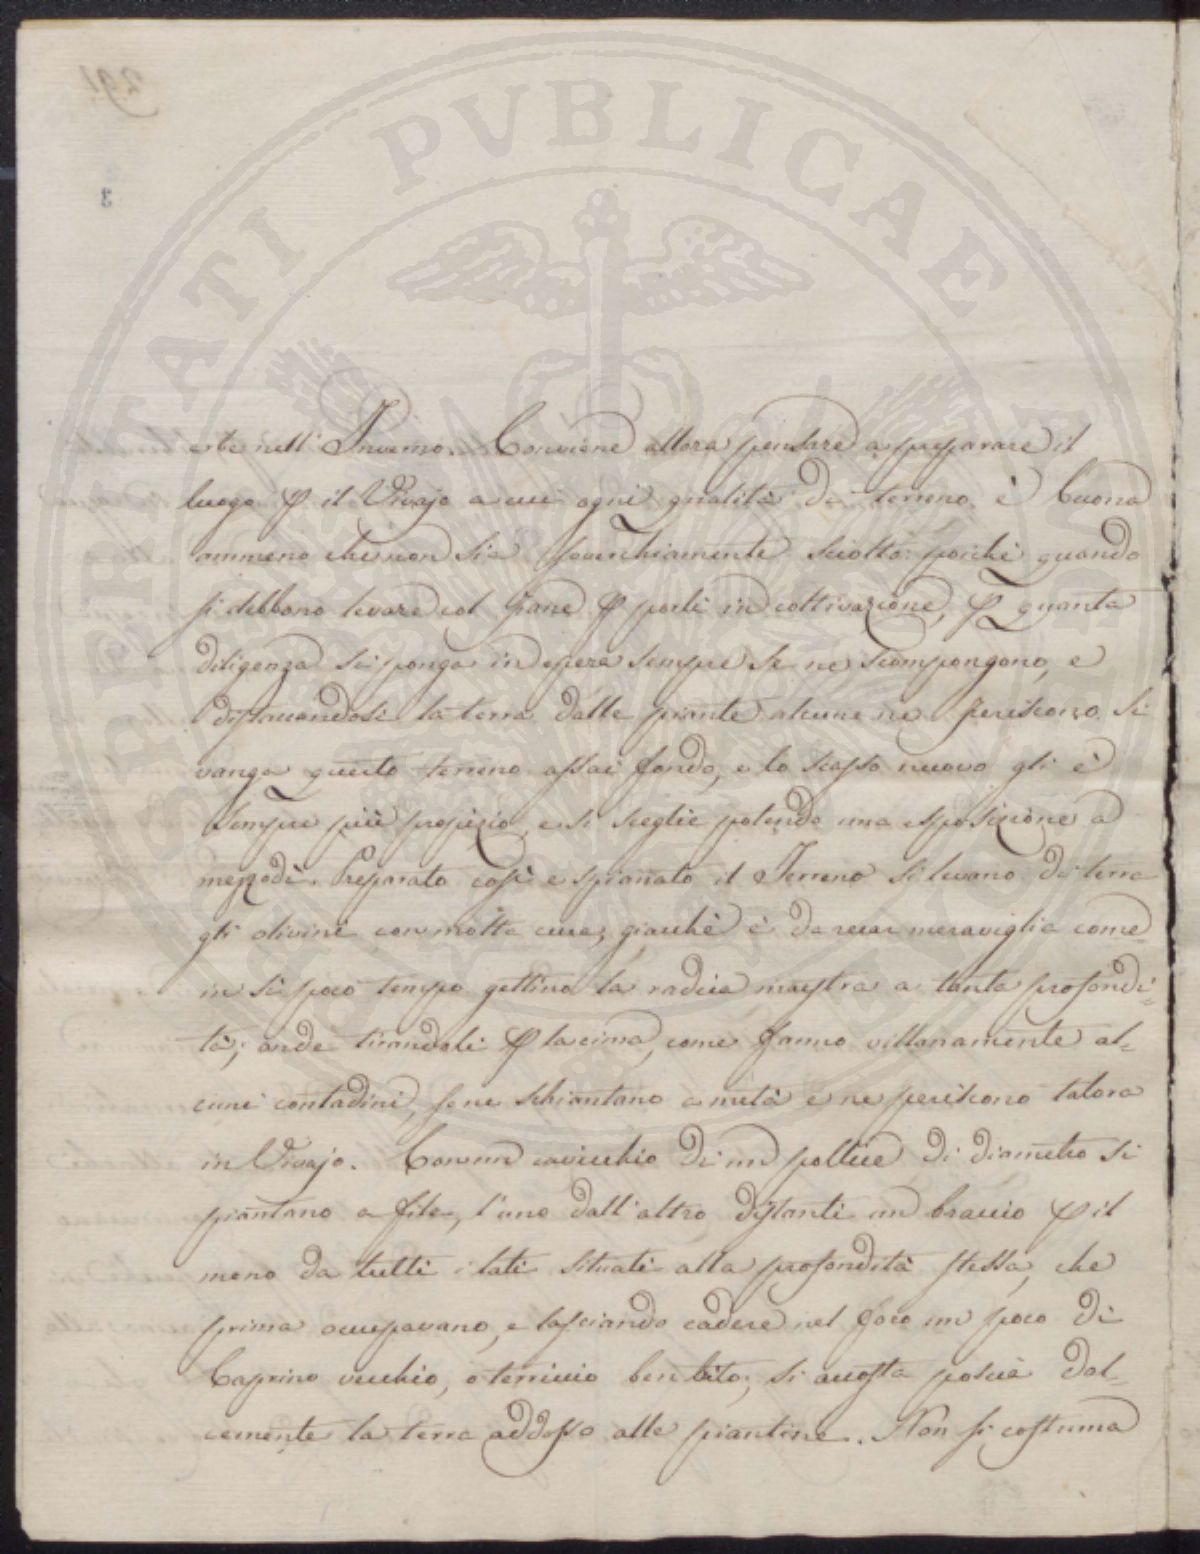 PROSPERITATI PVBLICAE
291
3
erbe nell' Inverno. Conviene allora pensare a preparare il
luogo p il Vivajo a cui ogni qualità di terreno è buona
ammeno che non sia soverchiamente sciolto: poichè quando
si debbono levare col pane p porli in coltivazione, p quanta
diligenza si ponga in opera sempre se ne scompongono, e
distaccandosi la terra dalle piante alcune ne periscono. Si
vanga questo terreno assai fondo, e lo scasso nuovo gli è
sempre più propizio, e si sceglie potendo una esposizione a
mezzodì. Preparato così e spianato il Terreno si levano di terra
gli olivini con molta cura, giacchè è da recar meraviglia come
in sì poco tempo gettino la radice maestra a tanta profondi-
tà; onde tirandoli p la cima, come fanno villanamente al-
cuni contadini, se ne schiantano a metà e ne periscono talora
in Vivajo. Con un cavicchio di un pollice di diametro si
piantano a file, l'uno dall'altro distanti un braccio p il
meno da tutti i lati situati alla profondità stessa, che
prima occupavano, e lasciando cadere nel foro un poco di
Caprino vecchio, o terriccio ben trito; si accosta poscia dol-
cemente la terra addosso alle piantine. Non si costuma